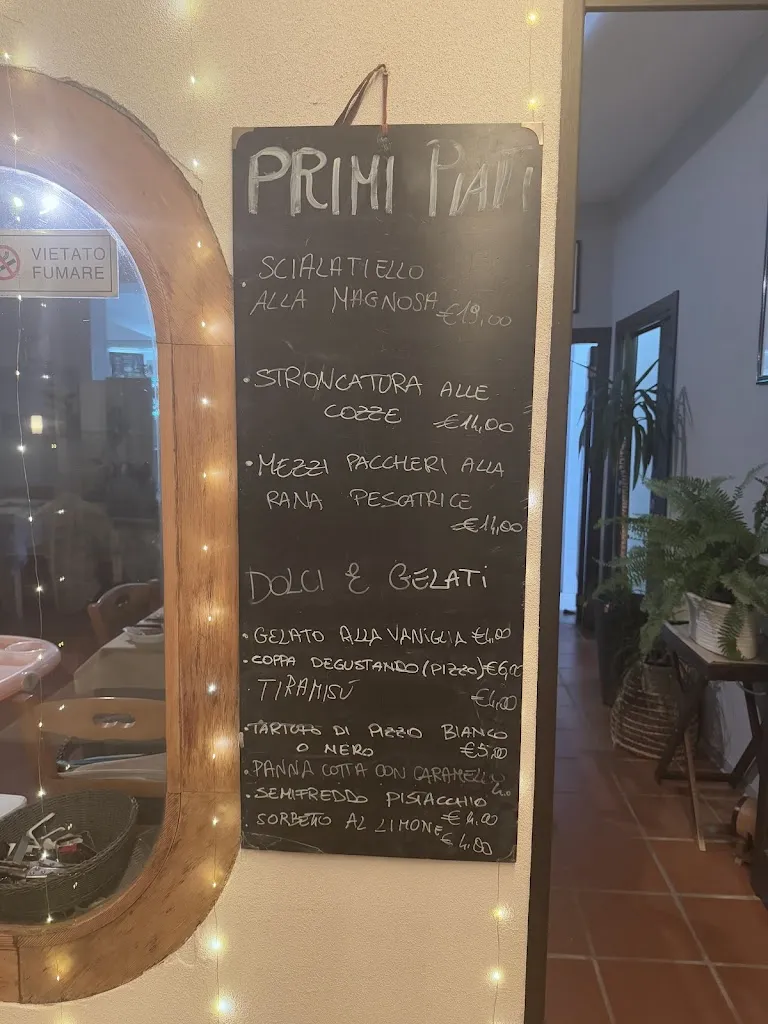 PRIMI PIATTI
VIETATO
FUMARE
SCIALATIELLO
ALLA MAGNOSA
• STRONCATURA ALLE
COZZE €14,00
• MEZZI PACCHERI ALLA
RANA PESCATRICE
€14,00
DOLCI E GELATI
• GELATO ALLA VANIGLIA €4,00
• COPPA DEGUSTANDO (PIZZO) €6,00
• TIRAMISÚ €4,00
• TARTUFO DI PIZZO BIANCO
O NERO €5,00
• PANNA COTTA CON CARAMELLO
• SEMIFREDDO PISTACCHIO
€4,00
• SORBETTO AL LIMONE € 4,00